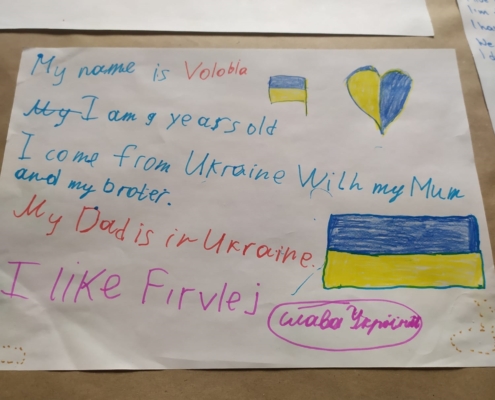 My name is Volobla
My I am 9 years old
I come from Ukraine With my Mum
and my broter.
My Dad is in Ukraine.
I like Firvlej
слава Україні